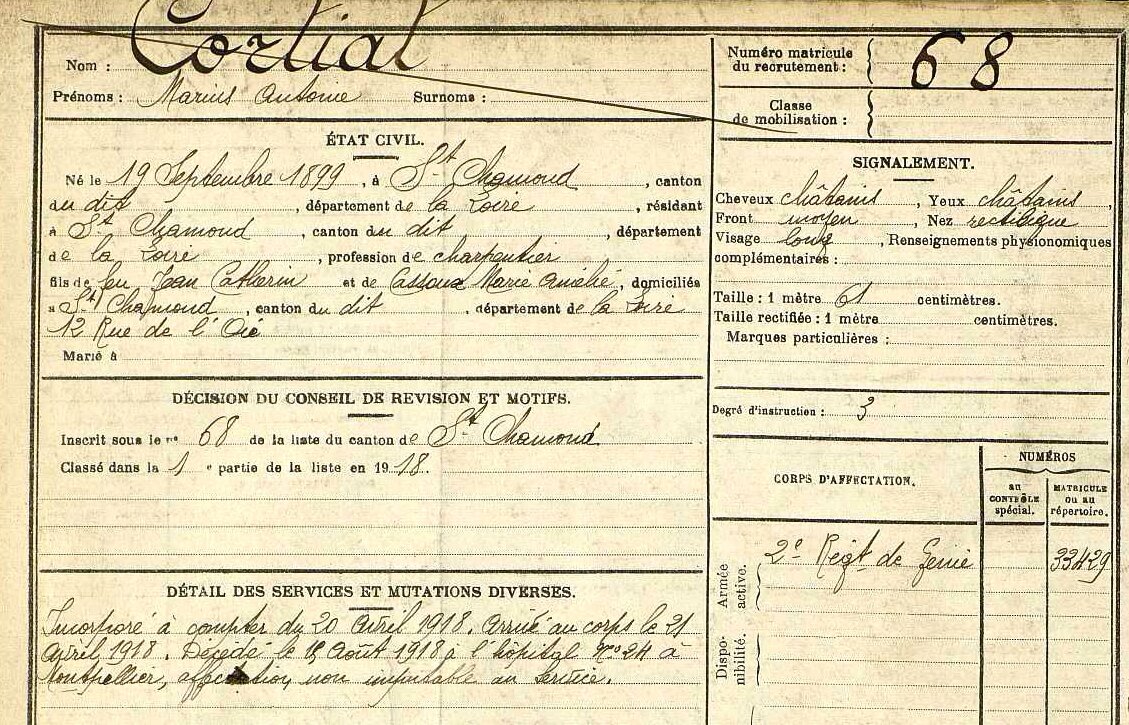 Nom : Cortial
Prénoms : Marius Antoine Surnoms :
ÉTAT CIVIL.
Né le 19 Septembre 1899, à St Chamond, canton
du dit, département de la Loire, résidant
à St Chamond, canton du dit, département
de la Loire, profession de charpentier
fils de feu Jean Catherin et de Marie Amélie, domiciliés
à St Chamond, canton du dit, département de la Loire
12 Rue de l'
Marié à
DÉCISION DU CONSEIL DE REVISION ET MOTIFS.
Inscrit sous le n° 68 de la liste du canton de St Chamond
Classé dans la 1 e partie de la liste en 1918.
DÉTAIL DES SERVICES ET MUTATIONS DIVERSES.
Incorporé à compter du 20 avril 1918. Arrivé au corps le 21
avril 1918. Décédé le août 1918 à l'hôpital N° 24 à
Montpellier, affection non imputable au service.
Numéro matricule
du recrutement : 68
Classe
de mobilisation :
SIGNALEMENT.
Cheveux châtains, Yeux châtains,
Front moyen, Nez rectiligne
Visage long, Renseignements physionomiques
complémentaires :
Taille : 1 mètre 61 centimètres.
Taille rectifiée : 1 mètre centimètres.
Marques particulières :
Degré d'instruction : 3
CORPS D'AFFECTATION.
NUMÉROS
au
CONTRÔLE
spécial.
MATRICULE
ou au
répertoire.
Armée
active.
2e Régt de Génie 33429
Dispo-
nibilité.